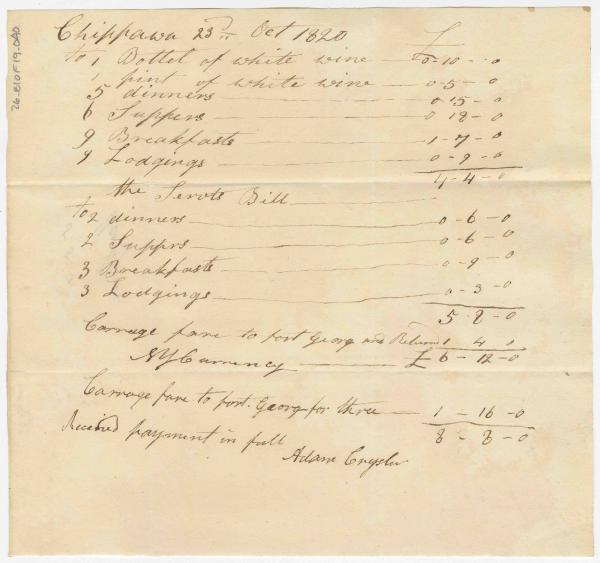 Chippawa 23rd Oct 1820
£
to 1 Bottel of white wine — 0-10-0
1 pint of white wine — 0-5-0
5 dinners — 0-15-0
6 Suppers — 0-18-0
9 Breakfasts — 1-7-0
9 Lodgings — 0-9-0
4-4-0
the Servts Bill
to 2 dinners — 0-6-0
2 Suppers — 0-6-0
3 Breakfasts — 0-9-0
3 Lodgings — 0-3-0
5-8-0
Carrage fare to fort Georg and Return 1 4 0
NY Currency — £ 6-12-0
Carrage fare to fort Georg for three — 1-16-0
8-8-0
Received payment in full
Adam Crysler
26-E10F19-0A0